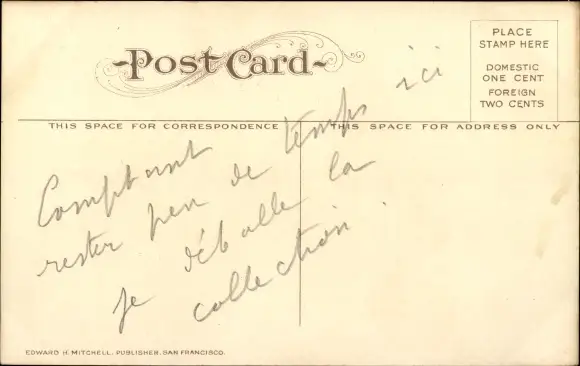 Post Card
PLACE
STAMP HERE
DOMESTIC
ONE CENT
FOREIGN
TWO CENTS
THIS SPACE FOR CORRESPONDENCE
THIS SPACE FOR ADDRESS ONLY
Comptant
rester peu de temps ici
je déballe la
collection.
EDWARD H. MITCHELL, PUBLISHER, SAN FRANCISCO.